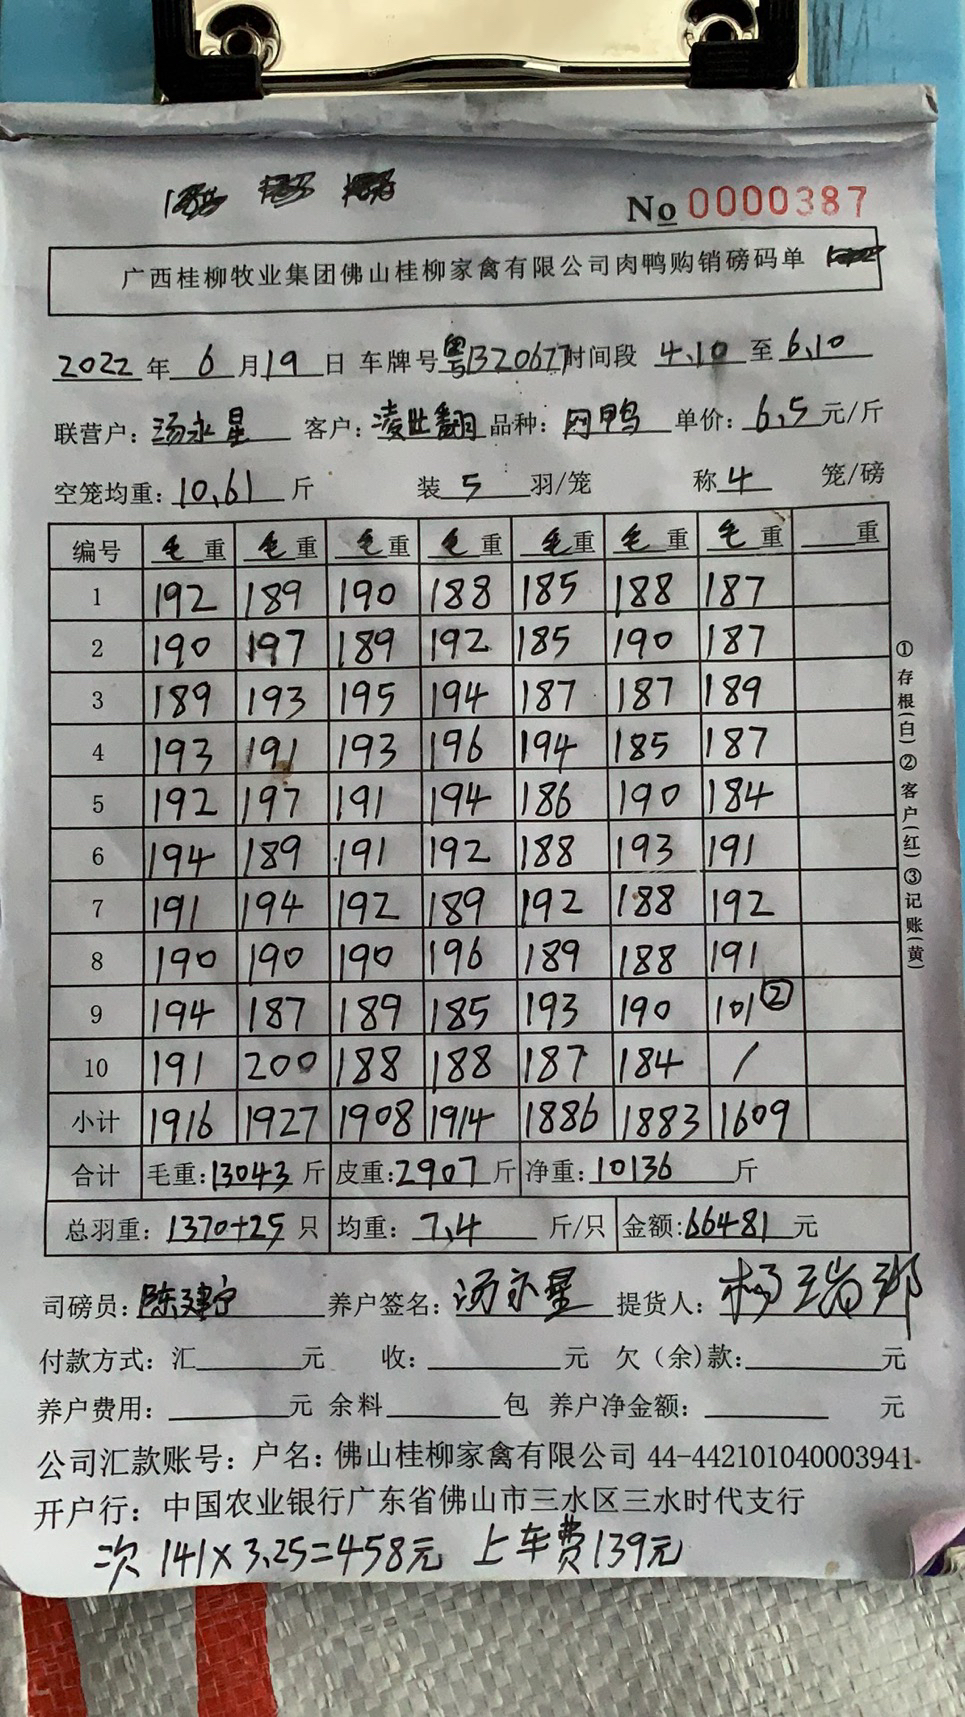 No 0000387
广西桂柳牧业集团佛山桂柳家禽有限公司肉鸭购销磅码单
2022年6月19日 车牌号粤B20677时间段4.10至6.10
联营户:汤永星 客户:凌世翻 品种:肉鸭 单价:6.5元/斤
空笼均重:10.61斤 装5羽/笼 称4笼/磅
编号 毛重 毛重 毛重 毛重 毛重 毛重 毛重 重
1 192 189 190 188 185 188 187
2 190 197 189 192 185 190 187
3 189 193 195 194 187 187 189
4 193 191 193 196 194 185 187
5 192 197 191 194 186 190 184
6 194 189 191 192 188 193 191
7 191 194 192 189 192 188 192
8 190 190 190 196 189 188 191
9 194 187 189 185 193 190 101②
10 191 200 188 188 187 184 /
小计 1916 1927 1908 1914 1886 1883 1609
合计 毛重:13043斤 皮重:2907斤 净重:10136斤
总羽重:1370+25只 均重:7.4斤/只 金额:66481元
司磅员:陈建宁 养户签名:汤永星 提货人:杨瑞邦
付款方式:汇 元 收: 元 欠(余)款: 元
养户费用: 元 余料 包 养户净金额: 元
公司汇款账号:户名:佛山桂柳家禽有限公司 44-442101040003941
开户行:中国农业银行广东省佛山市三水区三水时代支行
二次 141×3.25=458元 上车费139元
①存根(白)②客户(红)③记账(黄)